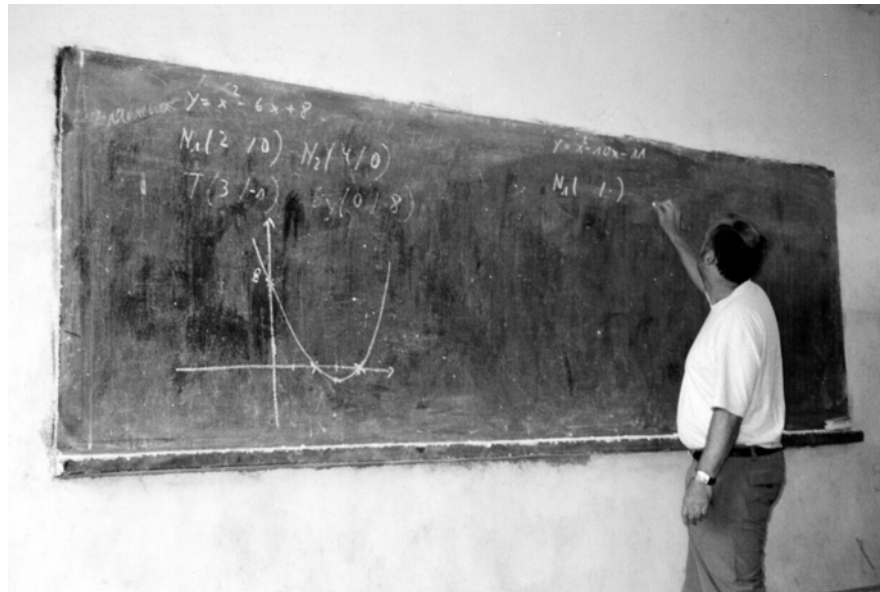 y = x² - 6x + 8
N₁(2 / 0) N₂(4 / 0)
T(3 / -1) Sy(0 / 8)
8
y = x² - 10x - 11
N₁( / )